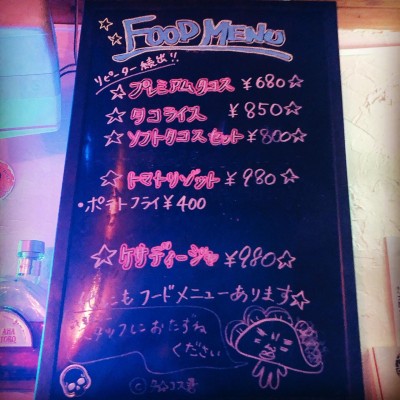 FOOD MENU
リピーター続出!!
☆プレミアムタコス ¥680☆
☆タコライス ¥850☆
☆ソフトタコスセット¥800☆
☆トマトリゾット¥980☆
・ポテトフライ¥400
☆ケサディージャ¥980☆
にもフードメニューあります☆
タッフにおたずね
ください